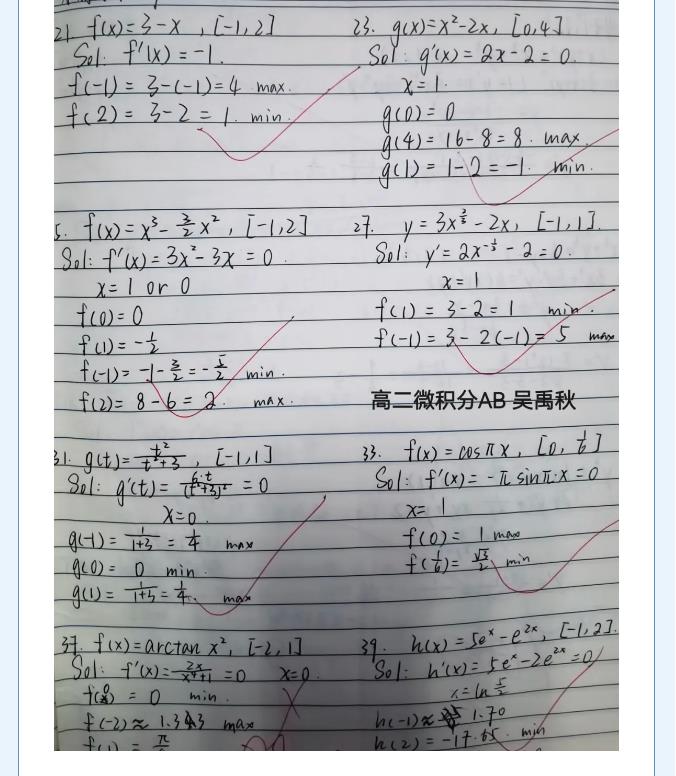 21. f(x)=3-x , [-1,2]
Sol: f'(x)=-1.
f(-1)= 3-(-1)=4 max.
f(2)= 3-2=1. min.
23. g(x)=x²-2x, [0,4]
Sol: g'(x)=2x-2=0.
x=1.
g(0)=0
g(4)=16-8=8. max.
g(1)=1-2=-1. min.
5. f(x)=x³-3/2x², [-1,2]
Sol: f'(x)=3x²-3x=0.
x=1 or 0
f(0)=0
f(1)=-1/2
f(-1)=-1-3/2=-5/2 min.
f(2)= 8-6=2. max.
27. y=3x^(2/3)-2x, [-1,1].
Sol: y'=2x^(-1/3)-2=0.
x=1
f(1)=3-2=1 min.
f(-1)=3-2(-1)=5 max
高二微积分AB 吴禹秋
31. g(t)=t²/(t²+3), [-1,1]
Sol: g'(t)=6·t/(t²+3)²=0
x=0.
g(-1)=1/(1+3)=1/4 max
g(0)= 0 min.
g(1)=1/(1+3)=1/4. max
33. f(x)=cosπx, [0,1/6]
Sol: f'(x)=-π sinπ·x=0
x= 1
f(0)= 1 max
f(1/6)=√3/2 min
37. f(x)=arctan x², [-2,1]
Sol: f'(x)=2x/(x⁴+1)=0 x=0.
f(0)=0 min.
f(-2)≈1.3 3 max
f(1)=π
39. h(x)=5e^x-e^(2x), [-1,2].
Sol: h'(x)=5e^x-2e^(2x)=0
x=ln 5/2
h(-1)≈ 1.70
h(2)=-17.65. min